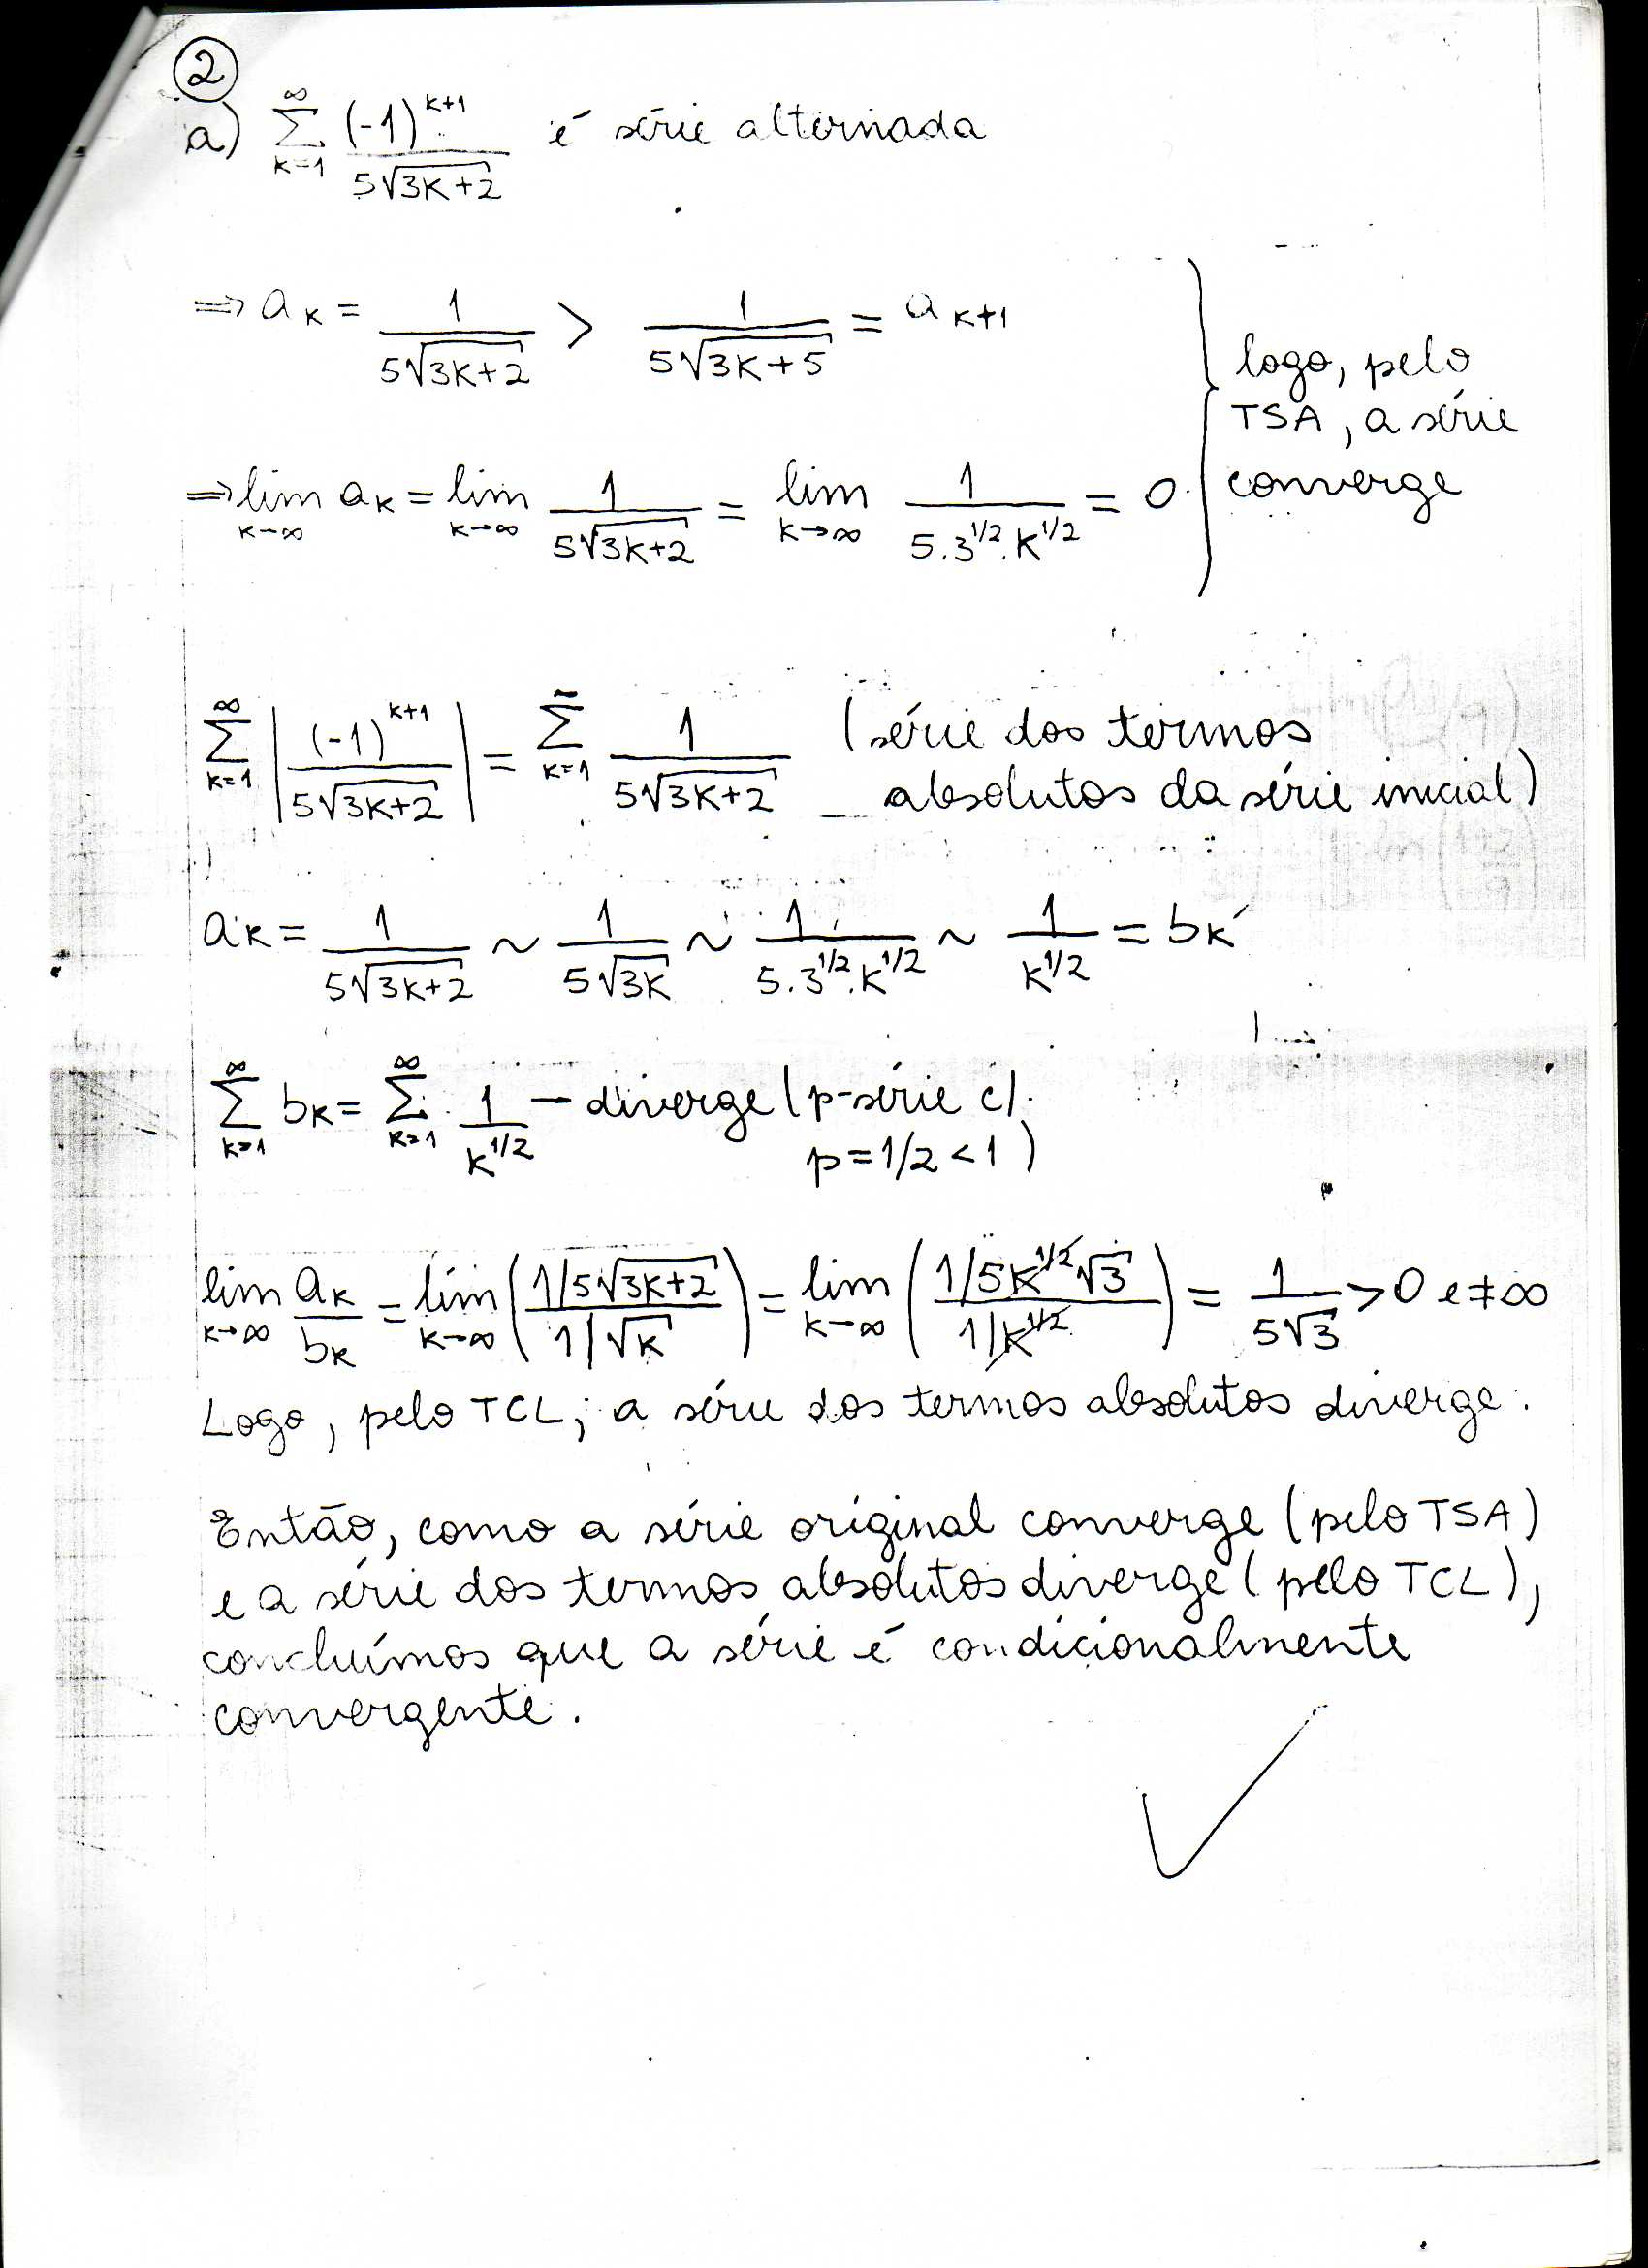 ②
a) ∑_{k=1}^{∞} (-1)^{k+1} / 5√(3k+2) é série alternada
⇒ a_k = 1 / 5√(3k+2) > 1 / 5√(3k+5) = a_{k+1}
⇒ lim_{k→∞} a_k = lim_{k→∞} 1 / 5√(3k+2) = lim_{k→∞} 1 / 5.3^{1/2}.k^{1/2} = 0
logo, pelo
TSA, a série
converge
∑_{k=1}^{∞} |(-1)^{k+1} / 5√(3k+2)| = ∑_{k=1}^{∞} 1 / 5√(3k+2) (série dos termos
absolutos da série inicial)
a_k = 1 / 5√(3k+2) ~ 1 / 5√(3k) ~ 1 / 5.3^{1/2}.k^{1/2} ~ 1 / k^{1/2} = b_k
∑_{k=1}^{∞} b_k = ∑_{k=1}^{∞} 1 / k^{1/2} → diverge (p-série c/
p=1/2 < 1)
lim_{k→∞} a_k / b_k = lim_{k→∞} ((1/5√(3k+2)) / (1/√k)) = lim_{k→∞} ((1/5k^{1/2}√3) / (1/k^{1/2})) = 1 / 5√3 > 0 e ≠ ∞
Logo, pelo TCL, a série dos termos absolutos diverge.
Então, como a série original converge (pelo TSA)
e a série dos termos absolutos diverge (pelo TCL),
concluímos que a série é condicionalmente
convergente.